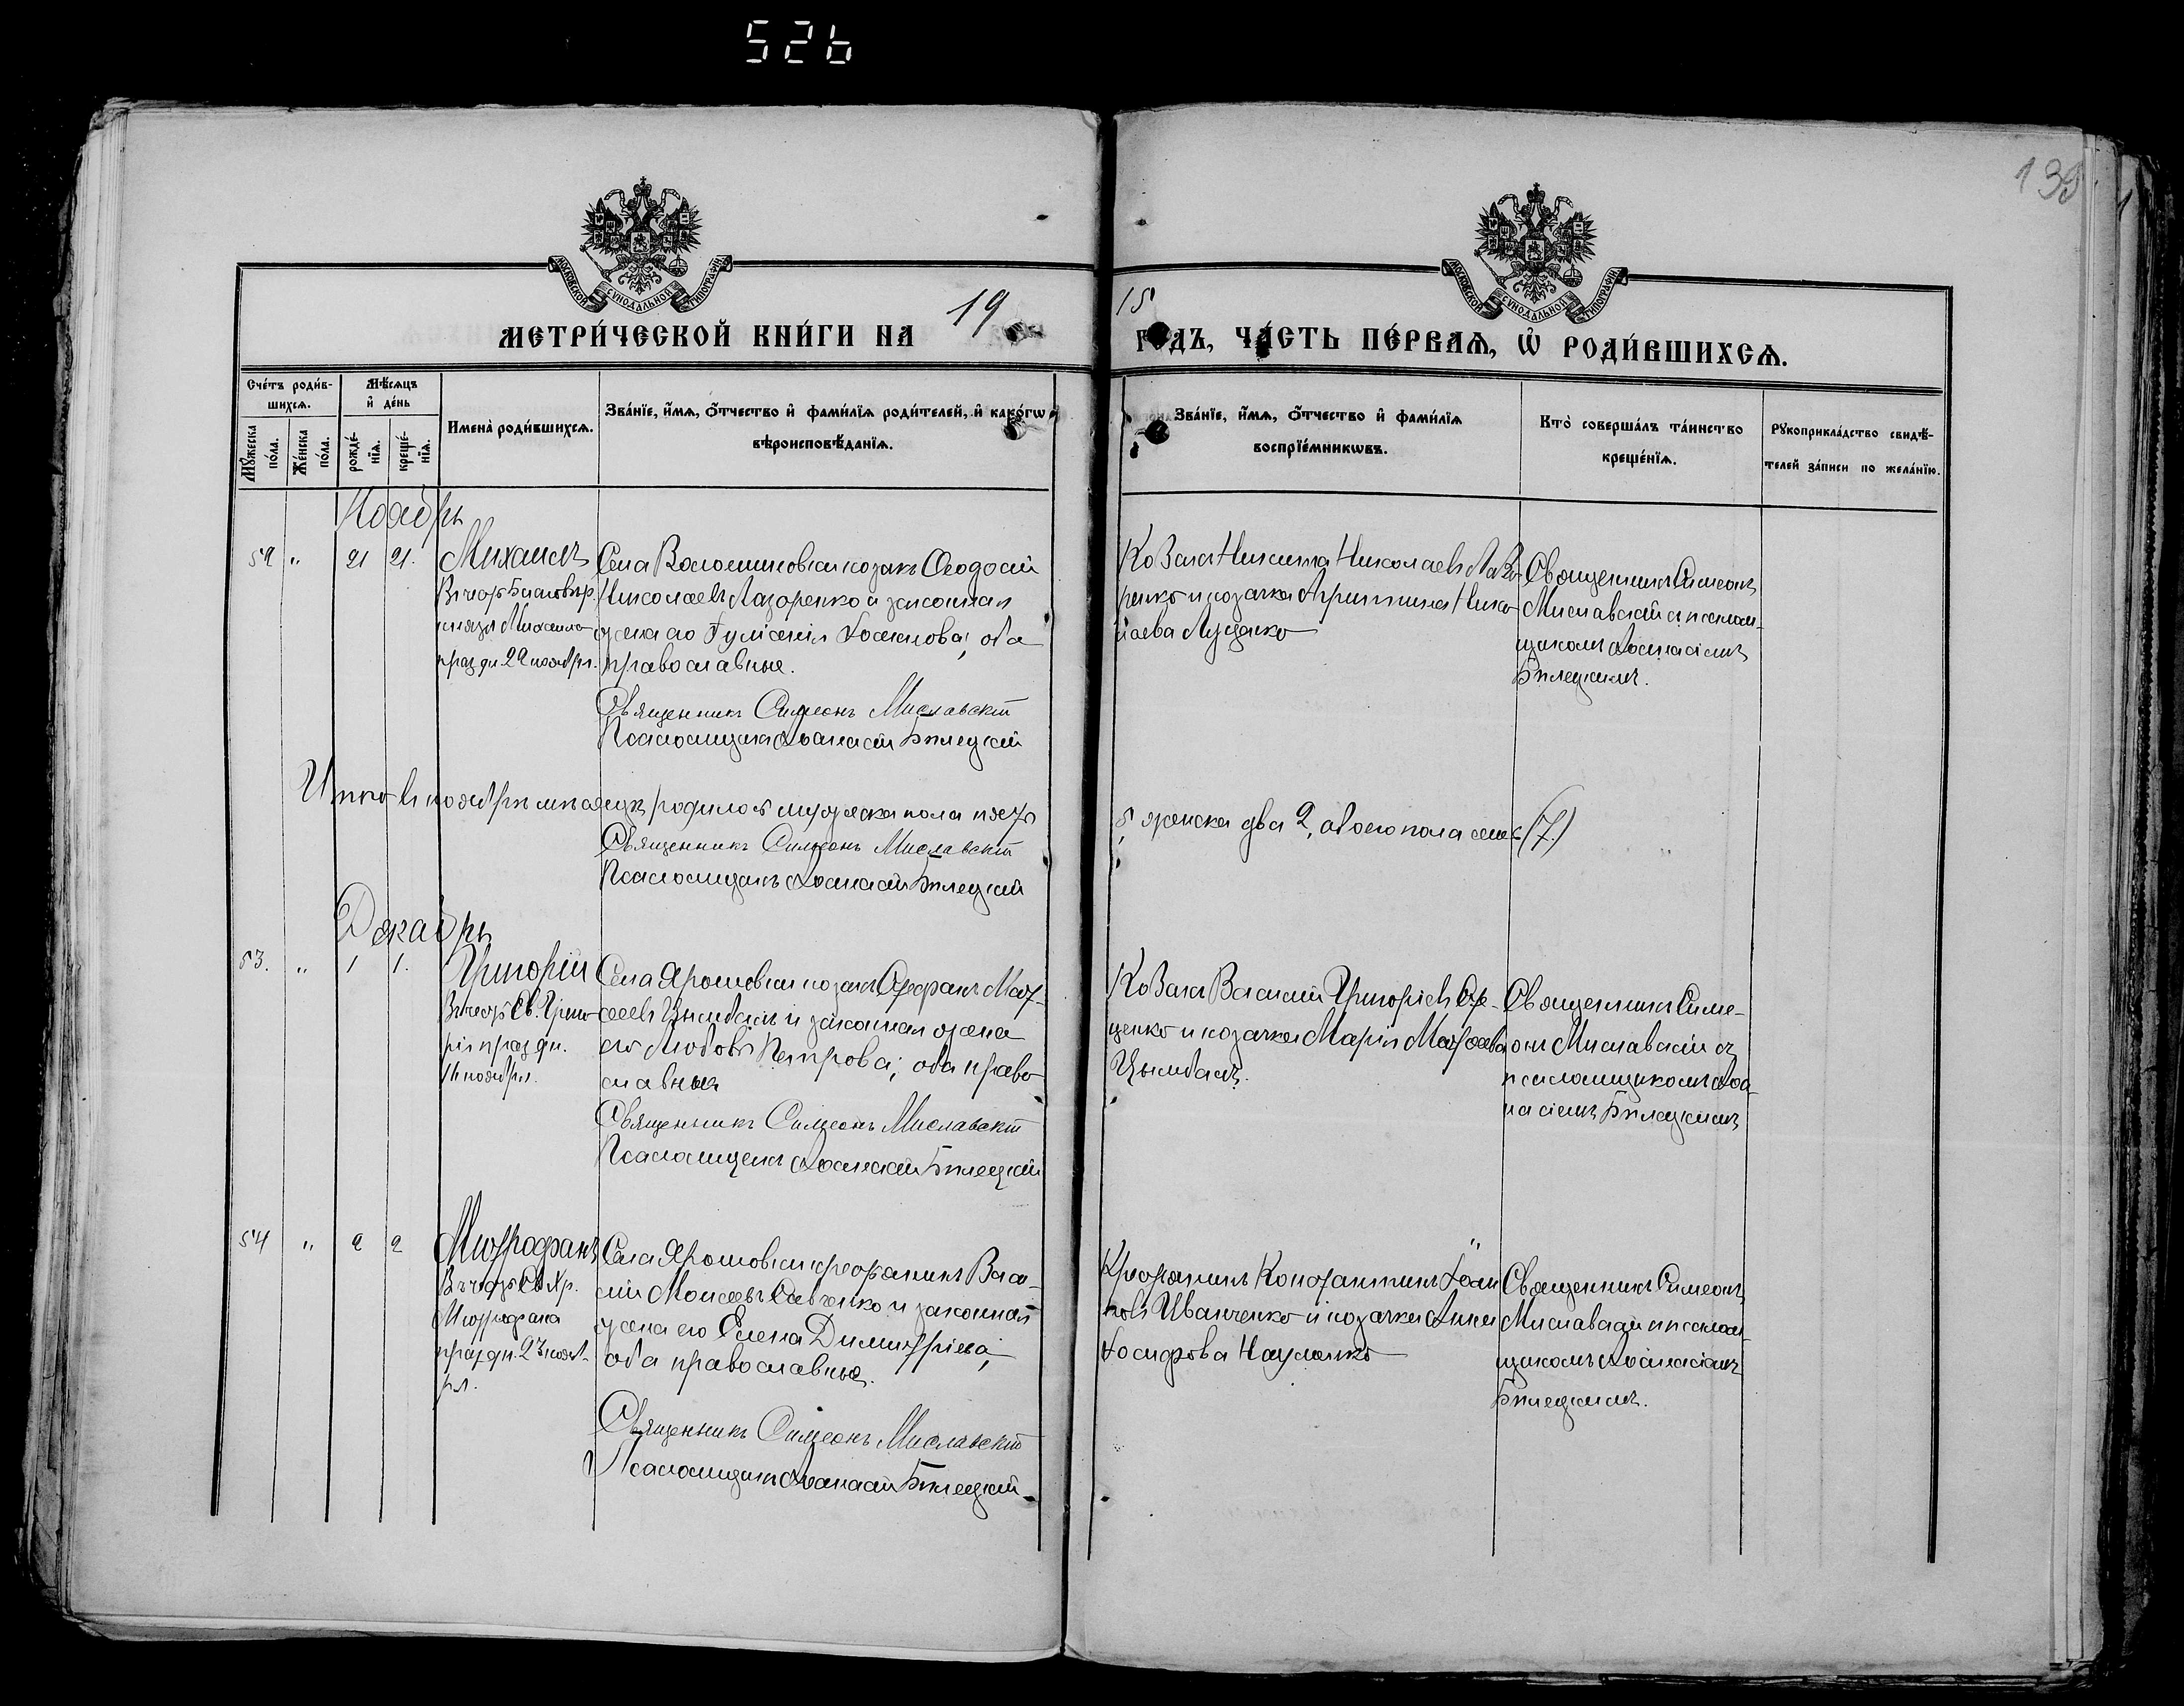 526
138
МОСКОВСКОЙ СУНОДАЛЬНОЙ ТИПОГРАФІИ
МОСКОВСКОЙ СУНОДАЛЬНОЙ ТИПОГРАФІИ
МЕТРИ́ЧЕСКОЙ КНИ́ГИ НА 19
15 ГОДЪ, ЧА́СТЬ ПЕ́РВАЯ, Ѡ РОДИ́ВШИХСЯ.
Сче́тъ роди́в-
шихся.
Мѣ́сяцъ
и де́нь
Му́жеска
по́ла.
Же́нска
по́ла.
рожде́-
нїя.
креще́-
нїя.
Имена̀ роди́вшихся.
Зва́нїе, и́мя, о́тчество и фами́лїя роди́телей, и како́гѡ
вѣроисповѣ́данїя.
Зва́нїе, и́мя, о́тчество и фами́лїя
воспрїе́мникѡвъ.
Кто̀ соверша́лъ та́инство
креще́нїя.
Рукоприкла́дство свидѣ́-
телей за́писи по жела́нїю.
Ноябрь
52 " 21 21. Михаилъ
Въ честь Благовѣр.
князя Михаила
праздн. 22 ноября.
Села Волошиновки козакъ Ѳеодосій
Николаевъ Лазоренко и законная
жена его Гликерія Іосифова, оба
православные.
Священникъ Симеонъ Миславскій
Псаломщикъ Аѳанасій Бѣлецкій
Козакъ Никита Николаевъ Лазо-
ренко и козачка Христина Нико-
лаева Луценко
Священникъ Симеонъ
Миславскій съ псалом-
щикомъ Аѳанасіемъ
Бѣлецкимъ.
Итого въ ноябрѣ мѣсяцѣ родилось мужеска пола пять
5, женска два 2, обоего пола семь (7.)
Священникъ Симеонъ Миславскій
Псаломщикъ Аѳанасій Бѣлецкій
Декабрь
53. " 1 1. Григорій
Въ честь Св. Григо-
рія праздн.
ноября.
Села Ярошовки козакъ Стефанъ Мат-
ѳеевъ Цымбалъ и законная жена
его Любовь Петрова; оба право-
славные
Священникъ Симеонъ Миславскій
Псаломщикъ Аѳанасій Бѣлецкій
Козакъ Василій Григорьевъ
ценко и козачка Марія Матѳеева
Цымбалъ.
Священникъ Симе-
онъ Миславскій съ
псаломщикомъ Аѳа-
насіемъ Бѣлецкимъ
54 " 2 2 Митрофанъ
Въ честь Св. Хр.
Митрофана
праздн. 23 нояб-
ря.
Села Ярошовки крестьянинъ Васи-
лій Моисеевъ Савченко и законная
жена его Елена Димитріева,
оба православные.
Священникъ Симеонъ Миславскій
Псаломщикъ Аѳанасій Бѣлецкій
Крестьянинъ Константинъ Іоан-
новъ Иванченко и козачка Анна
Іосифова Науменко
Священникъ Симеонъ
Миславскій и псалом-
щикомъ Аѳанасіемъ
Бѣлецкимъ.